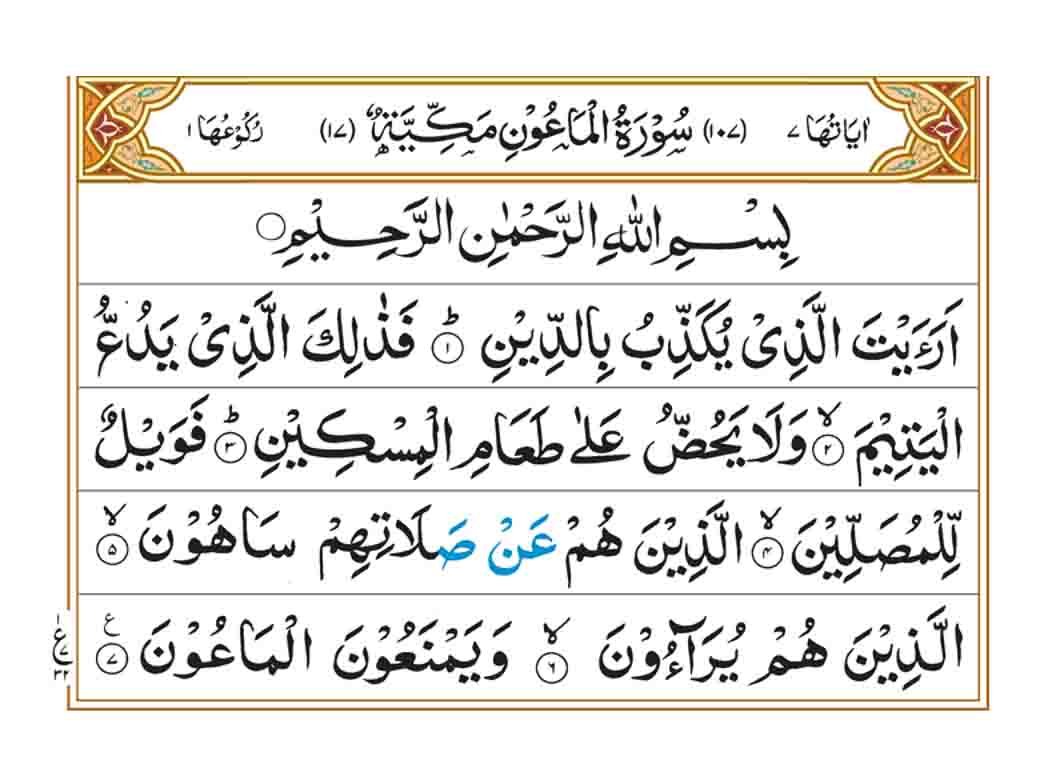 اٰيَاتُهَا ٧ (١٠٧) سُوْرَةُ الْمَاعُوْنِ مَكِّيَّةٌ (١٧) رُكُوْعُهَا ١
بِسْمِ اللهِ الرَّحْمٰنِ الرَّحِيْمِ
اَرَءَيْتَ الَّذِىْ يُكَذِّبُ بِالدِّيْنِ ؕ ١ فَذٰلِكَ الَّذِىْ يَدُعُّ
الْيَتِيْمَ ۙ ٢ وَلَا يَحُضُّ عَلٰى طَعَامِ الْمِسْكِيْنِ ؕ ٣ فَوَيْلٌ
لِّلْمُصَلِّيْنَ ۙ ٤ الَّذِيْنَ هُمْ عَنْ صَلَاتِهِمْ سَاهُوْنَ ۙ ٥
الَّذِيْنَ هُمْ يُرَآءُوْنَ ۙ ٦ وَيَمْنَعُوْنَ الْمَاعُوْنَ ٧ ع
١
ع ٧
٣٢